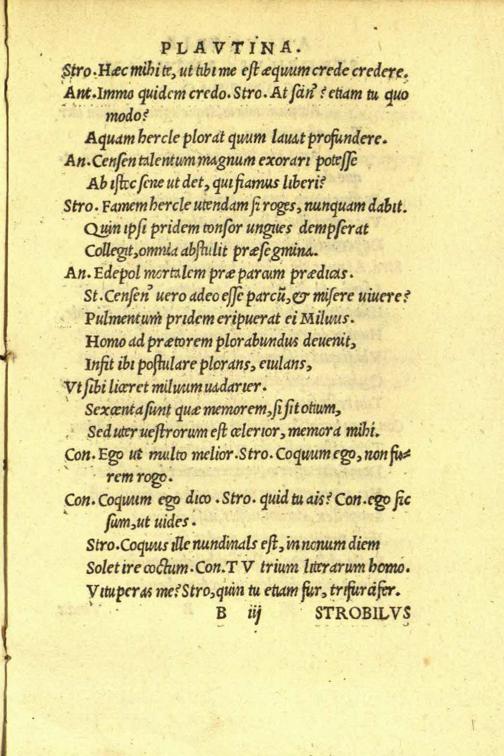 PLAVTINA.
Stro. Hæc mihi te, ut tibi me est æquum crede credere.
Ant. Immo quidem credo. Stro. At scin' ? etiam tu quo
modo?
Aquam hercle plorat quum lauat profundere.
An. Censen talentum magnum exorari potesse
Ab istoc sene ut det, qui fiamus liberi?
Stro. Famem hercle utendam si roges, nunquam dabit.
Quin ipsi pridem tonsor ungues dempserat
Collegit, omnia abstulit præsegmina.
An. Edepol mortalem præ parcum prædicas.
St. Censen' uero adeo esse parcū, & misere uiuere?
Pulmentum pridem eripuerat ei Miluus.
Homo ad prætorem plorabundus deuenit,
Infit ibi postulare plorans, eiulans,
Vt sibi liceret miluum uadarier.
Sexcenta sunt quæ memorem, si sit otium,
Sed uter uestrorum est celerior, memora mihi.
Con. Ego ut multo melior. Stro. Coquum ego, non fu-
rem rogo.
Con. Coquum ego dico. Stro. quid tu ais? Con. ego sic
sum, ut uides.
Stro. Coquus ille nundinals est, in nonum diem
Solet ire coctum. Con. TV trium literarum homo.
Vituperas me? Stro, quin tu etiam fur, trifurcifer.
B iij STROBILVS